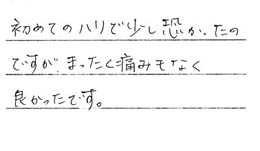 初めてのハリで少し恐かったの
ですが、まったく痛みもなく
良かったです。